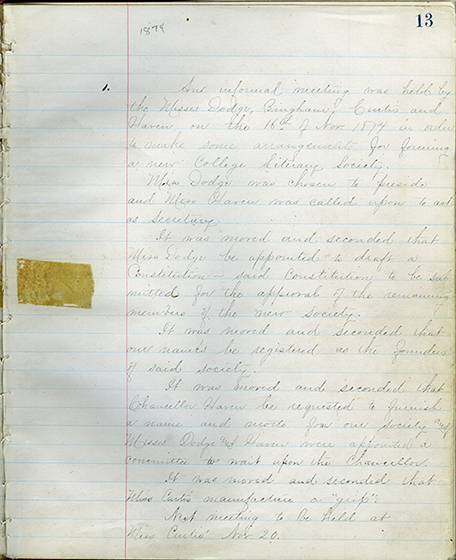 13
1874
1. An informal meeting was held by
the Misses Dodge, Bingham, Curtis and
Haven on the 16th of Nov 1874 in order
to make some arrangements for forming
a new College Literary Society.
Miss Dodge was chosen to preside
and Miss Haven was called upon to act
as Secretary.
It was moved and seconded that
Miss Dodge be appointed to draft a
Constitution - said Constitution to be sub
mitted for the approval of the remaining
members of the new Society.
It was moved and seconded that
our names be registered as the founders
of said society.
It was moved and seconded that
Chancellor Haven be requested to furnish
a name and motto for our society and
Misses Dodge and Haven were appointed a
committee to wait upon the Chancellor.
It was moved and seconded that
Miss Curtis manufacture a "grip".
Next meeting to be held at
Miss Curtis' Nov 20.